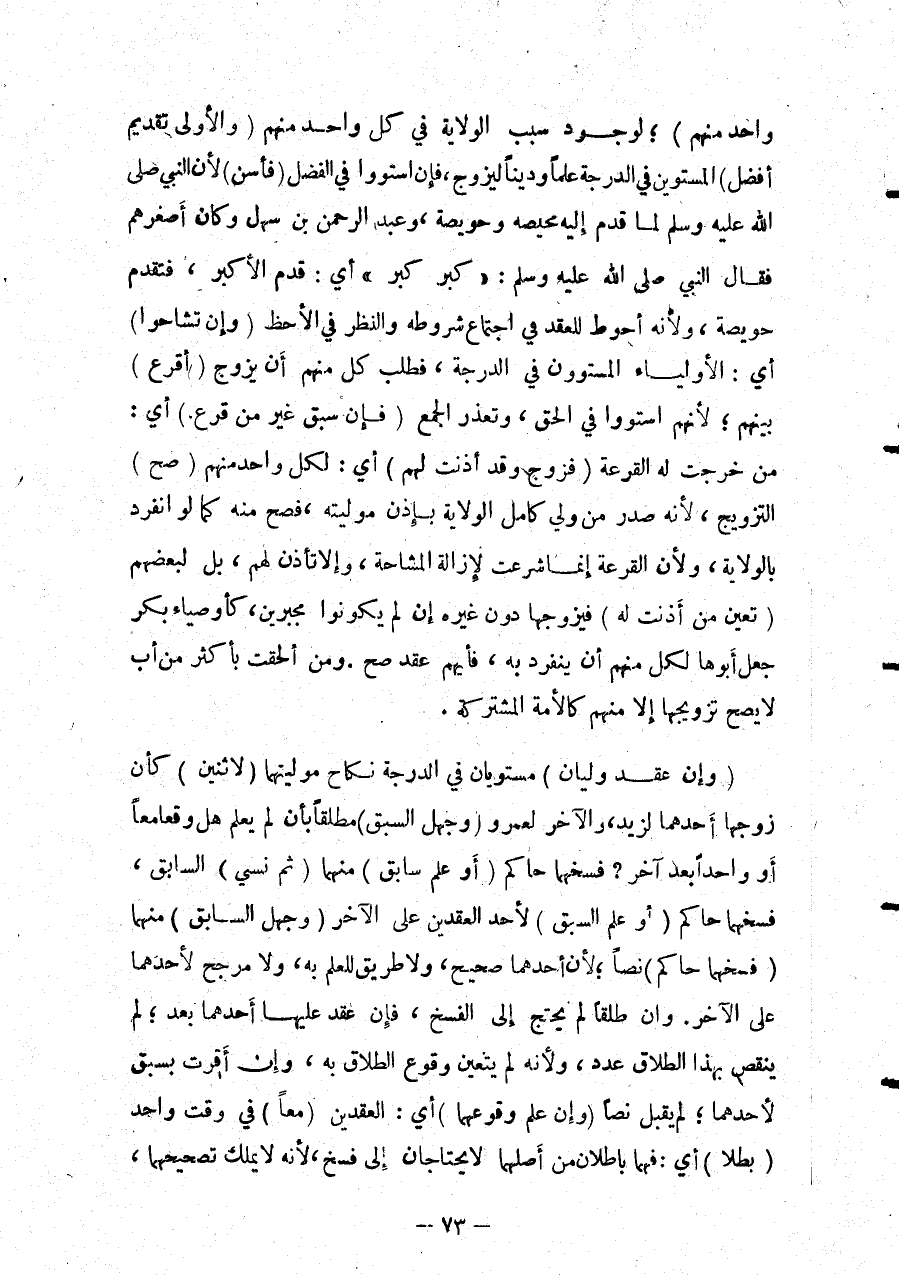 واحد منهم ) ؛ لوجود سبب الولاية في كل واحد منهم ( والأولى تقديم
أفضل ) المستوين في الدرجة علماً وديناً ليزوج ، فإن استووا في الفضل ( فأسن ) لأن النبي صلى
الله عليه وسلم لما قدم إليه محيصه وحويصة ، وعبد الرحمن بن سهل وكان أصغرهم
فقال النبي صلى الله عليه وسلم : « كبر كبر » أي : قدم الأكبر ، فتقدم
حويصة ، ولأنه أحوط للعقد في اجتماع شروطه والنظر في الأحظ ( وإن تشاحوا )
أي : الأولياء المستوون في الدرجة ، فطلب كل منهم أن يزوج ( أقرع )
بينهم ؛ لأنهم استووا في الحق ، وتعذر الجمع ( فإن سبق غير من قرع ) أي :
من خرجت له القرعة ( فزوج وقد أذنت لهم ) أي : لكل واحد منهم ( صح )
التزويج ، لأنه صدر من ولي كامل الولاية بإذن موليته ، فصح منه كما لو انفرد
بالولاية ، ولأن القرعة إنما شرعت لإزالة المشاحة ، وإلا تأذن لهم ، بل لبعضهم
( تعين من أذنت له ) فيزوجها دون غيره إن لم يكونوا مجبرين ، كأوصياء بكر
جعل أبوها لكل منهم أن ينفرد به ، فأيهم عقد صح . ومن ألحقت بأكثر من أب
لا يصح تزويجها إلا منهم كالأمة المشتركة .
( وإن عقد وليان ) مستويان في الدرجة نكاح موليتها ( لاثنين ) كأن
زوجها أحدهما لزيد ، والآخر لعمرو ( وجهل السبق ) مطلقاً بأن لم يعلم هل وقعا معاً
أو واحداً بعد آخر ? فسخهما حاكم ( أو علم سابق ) منهما ( ثم نسي ) السابق ،
فسخهما حاكم ( أو علم السبق ) لأحد العقدين على الآخر ( وجهل السابق ) منهما
( فسخهما حاكم ) نصاً ؛ لأن أحدهما صحيح ، ولا طريق للعلم به ، ولا مرجح لأحدهما
على الآخر . وان طلقا لم يحتج إلى الفسخ ، فإن عقد عليها أحدهما بعد ؛ لم
ينقص بهذا الطلاق عدد ، ولأنه لم يتعين وقوع الطلاق به ، وإن أقرت بسبق
لأحدهما ؛ لم يقبل نصاً ( وإن علم وقوعهما ) أي : العقدين ( معاً ) في وقت واحد
( بطلا ) أي : فهما باطلان من أصلهما لا يحتاجان إلى فسخ ، لأنه لا يملك تصحيحهما ،
— ٧٣ —